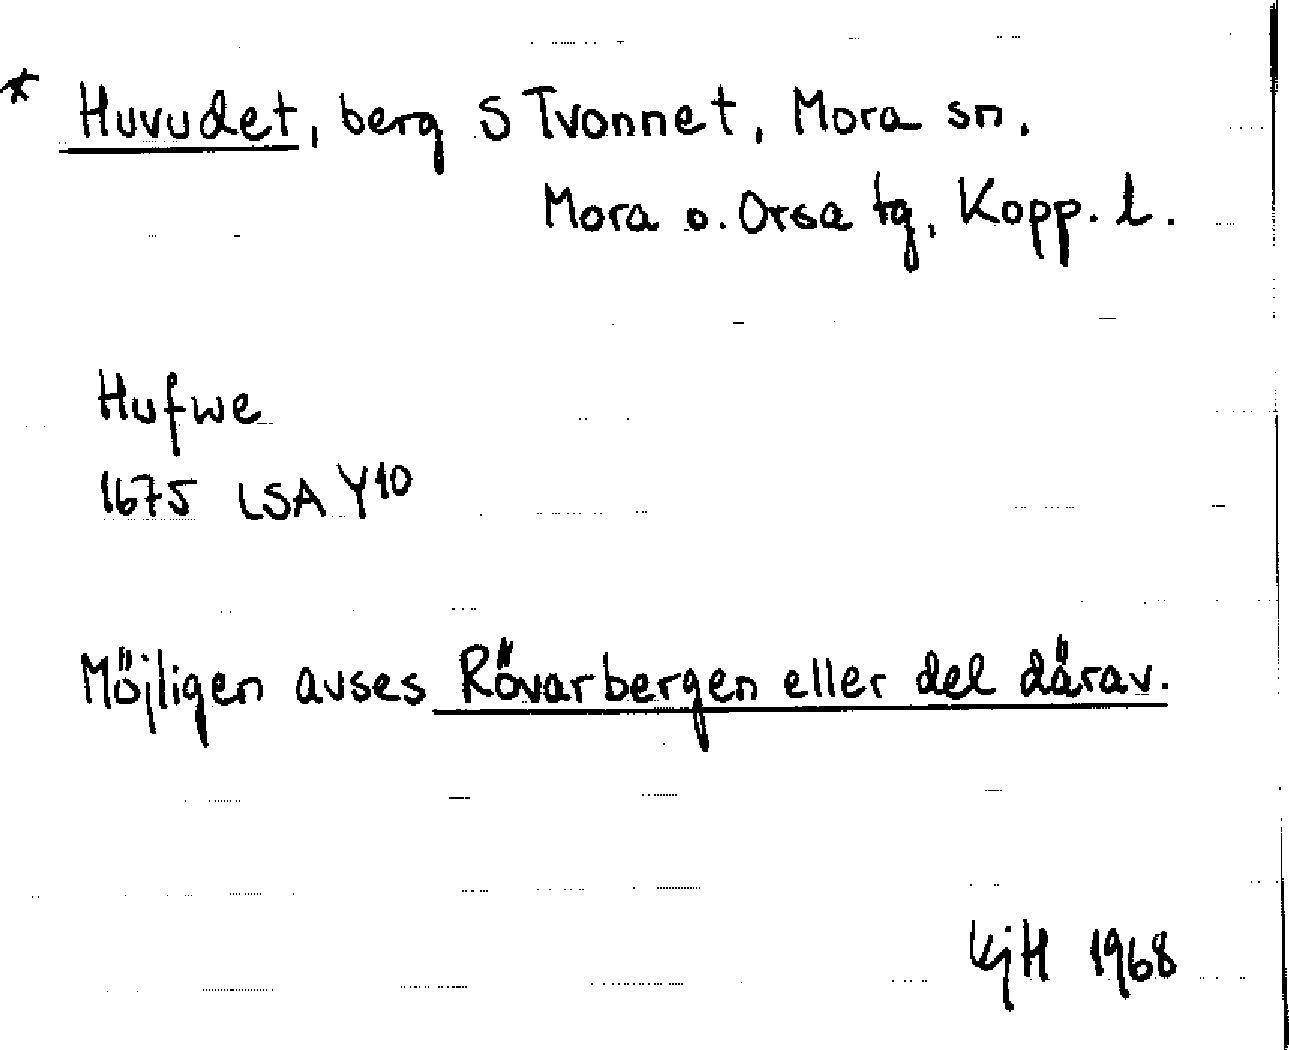 * Huvudet, berg S Tvonnet, Mora sn.
Mora o. Orsa tg, Kopp. l.
Hufwe
1675 LSA Y10
Möjligen avses Rövarbergen eller del därav.
KjH 1968